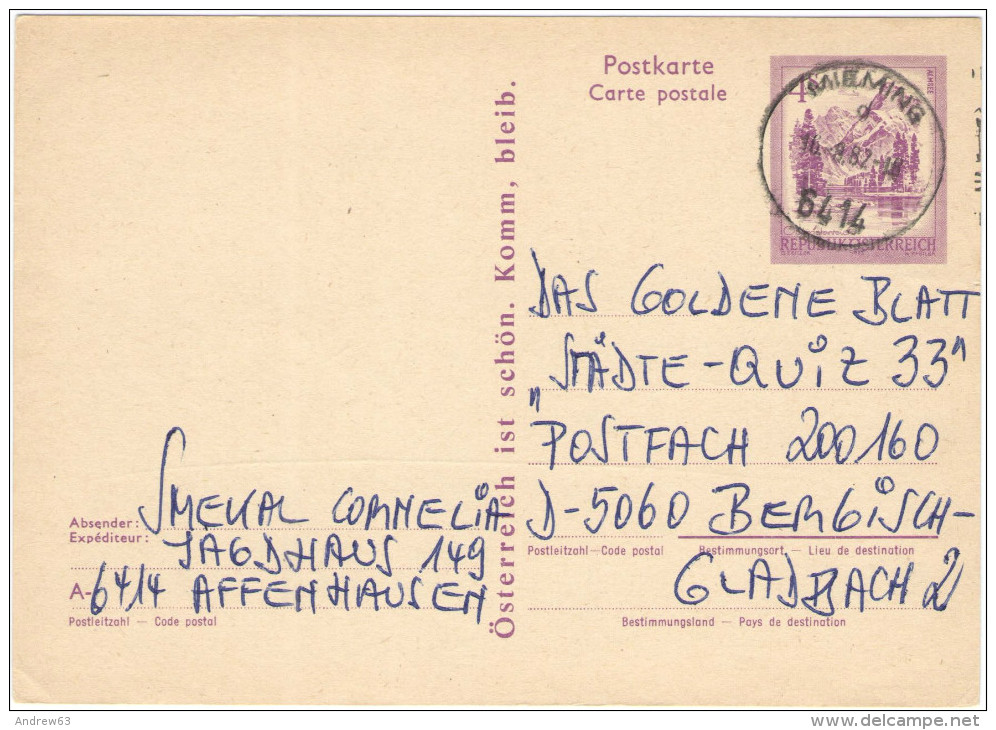 Postkarte
Carte postale
4
ALMSEE
MIEMING
6414
REPUBLIK ÖSTERREICH
Österreich ist schön. Komm, bleib.
DAS GOLDENE BLATT
„STÄDTE-QUIZ 33"
POSTFACH 200160
D-5060 BERGISCH-
Postleitzahl—Code postal Bestimmungsort — Lieu de destination
GLADBACH 2
Bestimmungsland — Pays de destination
SMEKAL CORNELIA
Absender:
Expéditeur:
JAGDHAUS 149
A-6414 AFFENHAUSEN
Postleitzahl — Code postal
Andrew63
www.delcampe.net